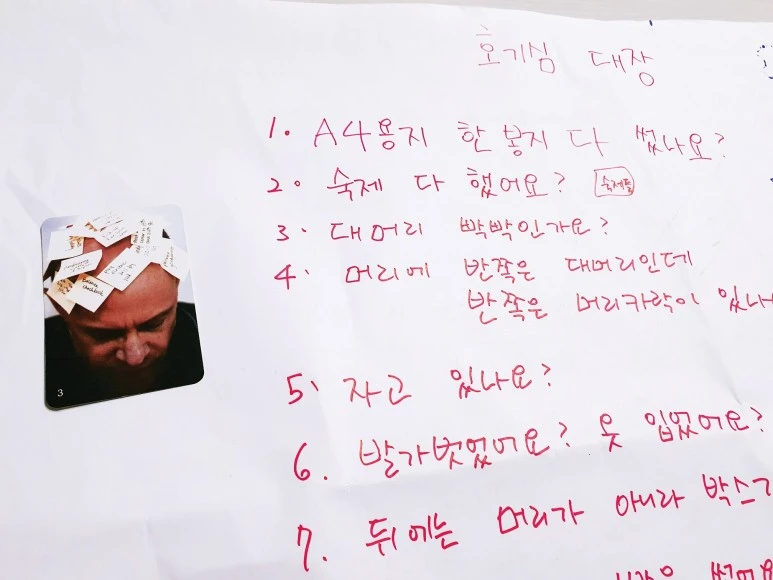 호기심 대장
1. A4용지 한 봉지 다 썼나요?
2. 숙제 다 했어요? 숙제들
3. 대머리 빡빡인가요?
4. 머리에 반쪽은 대머리인데
반쪽은 머리카락이 있나
5. 자고 있나요?
6. 발가벗었어요? 옷 입었어요?
7. 뒤에는 머리가 아니라 박스
3